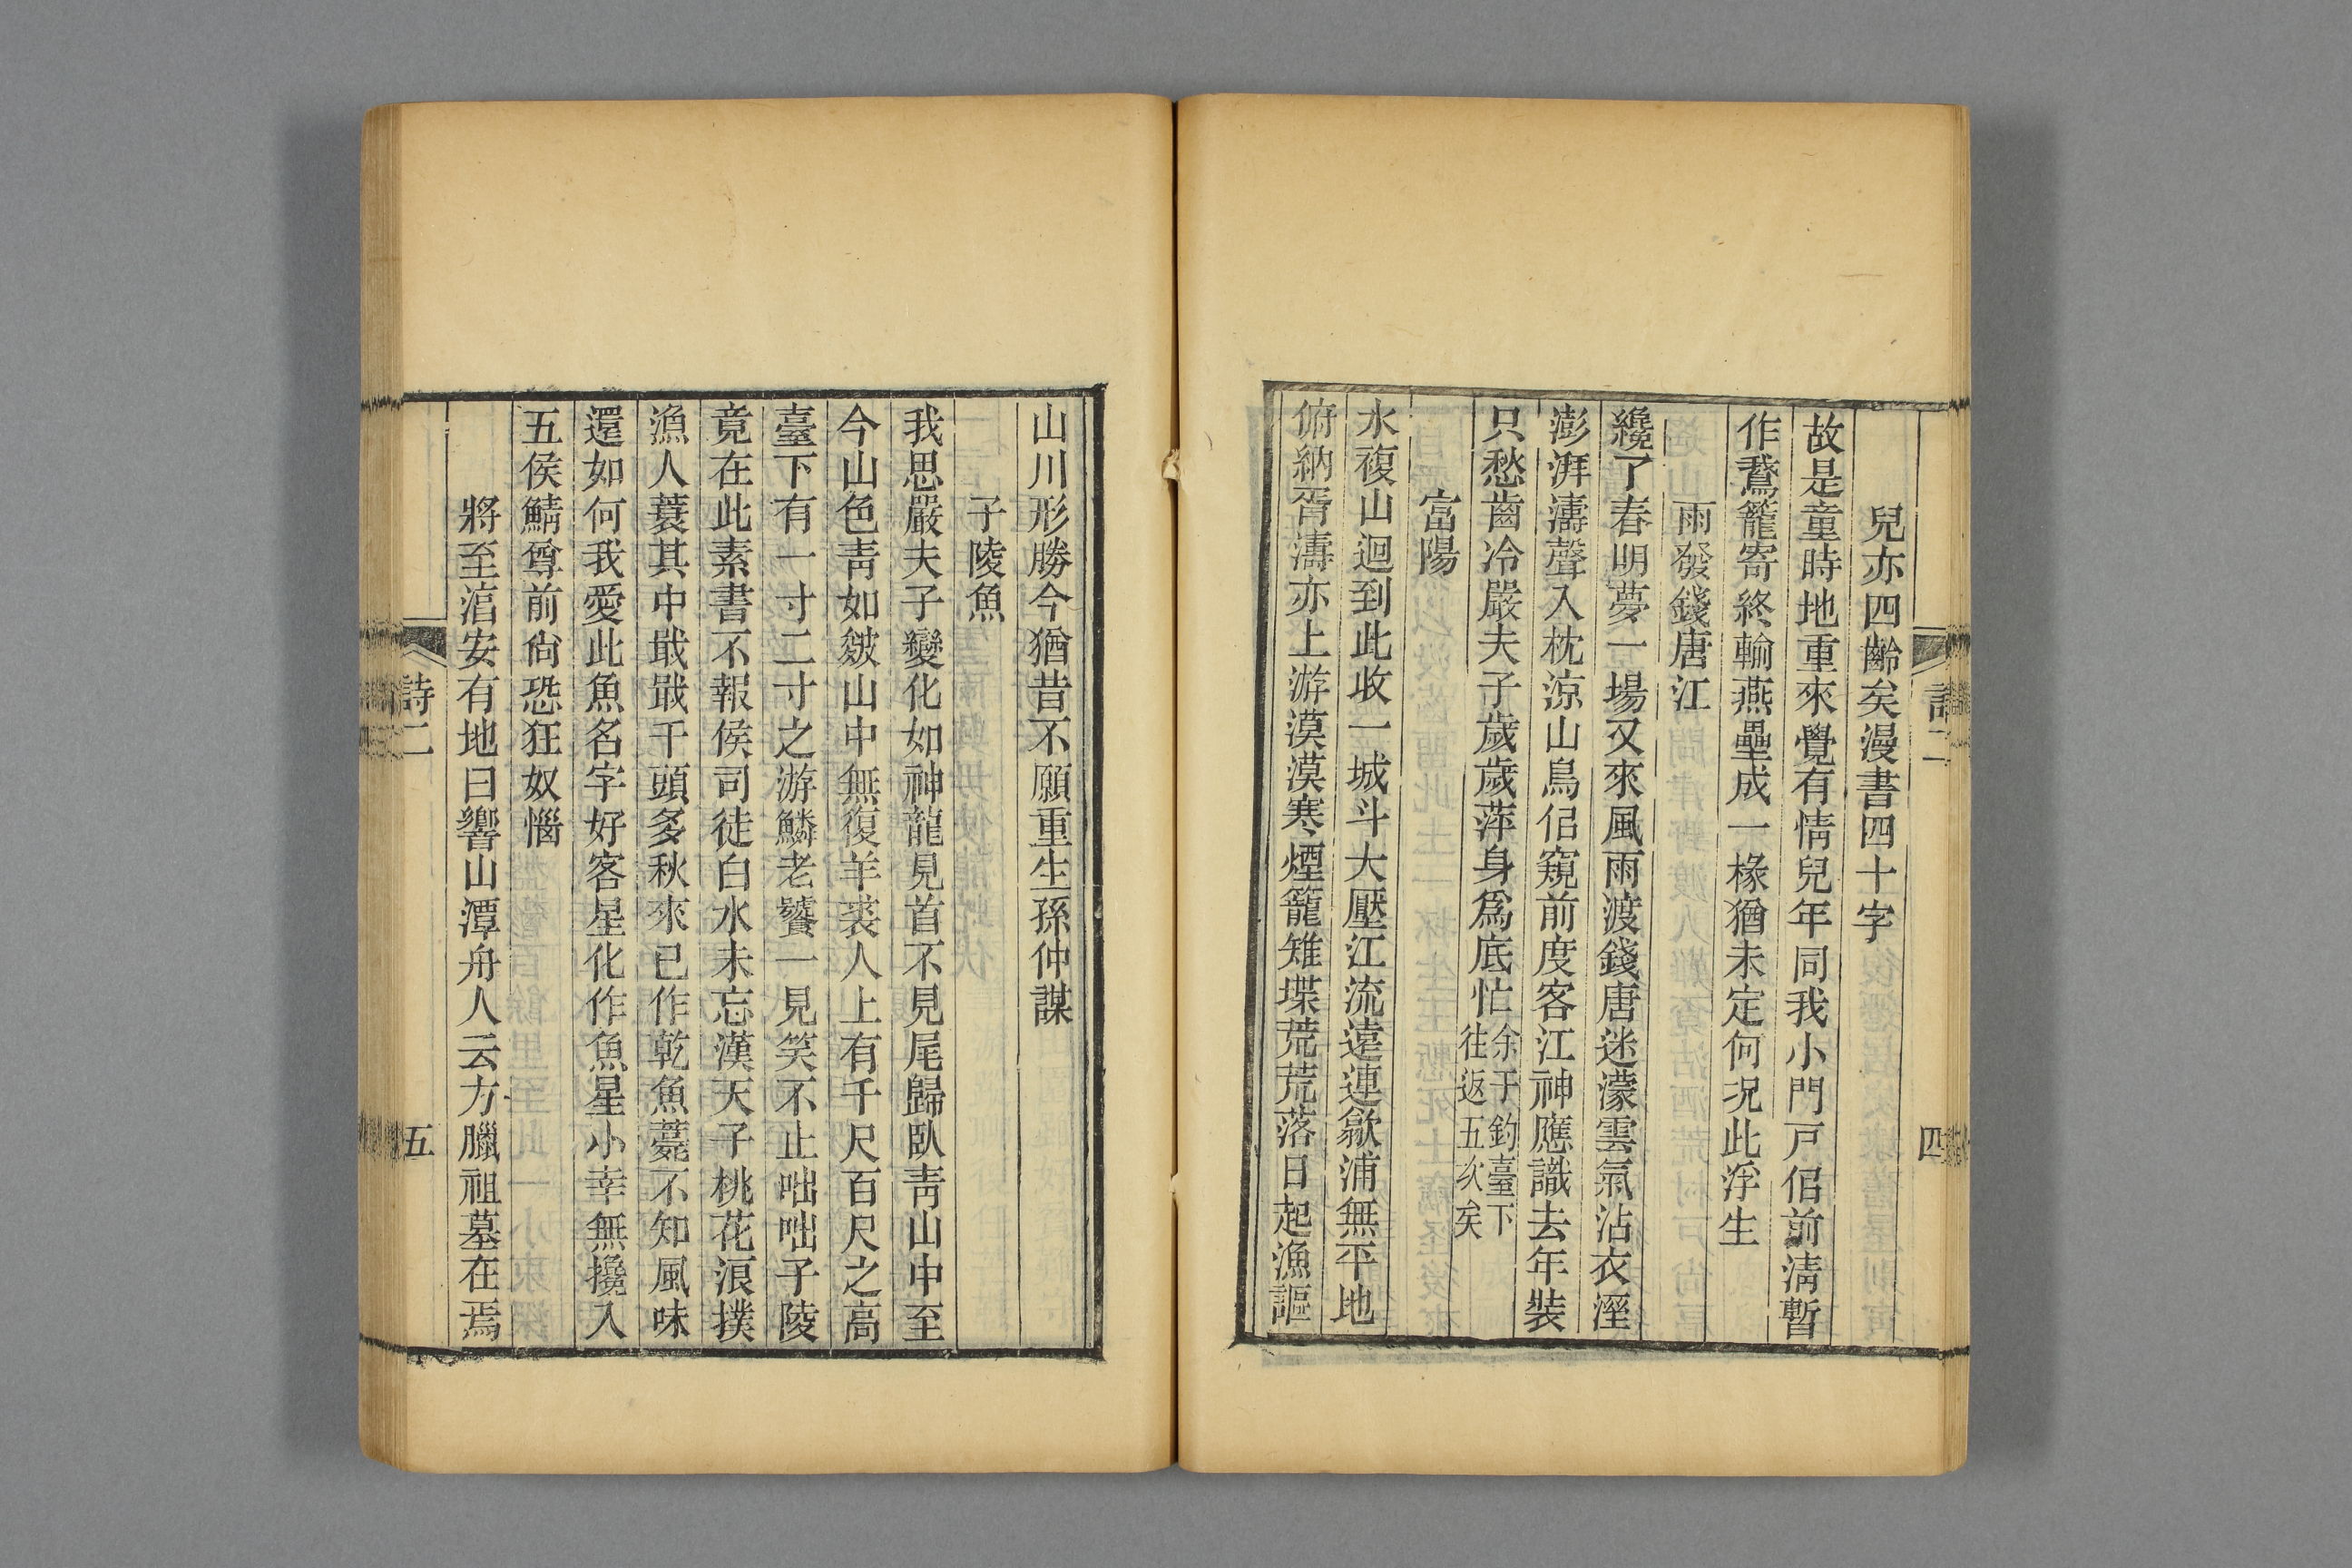 詩二
四
兒亦四齡矣漫書四十字
故是童時地重來覺有情兒年同我小門戸侶前淸暫
作鵞籠寄終輸燕壘成一椽猶未定何况此浮生
雨發錢唐江
纔了春明夢一場又來風雨渡錢唐迷濛雲氣沾衣溼
澎湃濤聲入枕涼山鳥侣窺前度客江神應識去年裝
只愁齒冷嚴夫子歲歲萍身爲底忙余于釣臺下
往返五次矣
富陽
水複山迴到此收一城斗大壓江流遠連歙浦無平地
俯納胥濤亦上游漠漠寒煙籠雉堞荒荒落日起漁謳
山川形勝今猶昔不願重生孫仲謀
子陵魚
我思嚴夫子變化如神龍見首不見尾歸臥靑山中至
今山色靑如皴山中無復羊裘人上有千尺百尺之高
臺下有一寸二寸之游鱗老饕一見笑不止咄咄子陵
竟在此素書不報侯司徒白水未忘漢天子桃花浪撲
漁人蓑其中戢戢千頭多秋來已作乾魚薧不知風味
還如何我愛此魚名字好客星化作魚星小幸無攙入
五侯鯖尊前尙恐狂奴惱
將至湻安有地曰響山潭舟人云方臘祖墓在焉
詩二
五